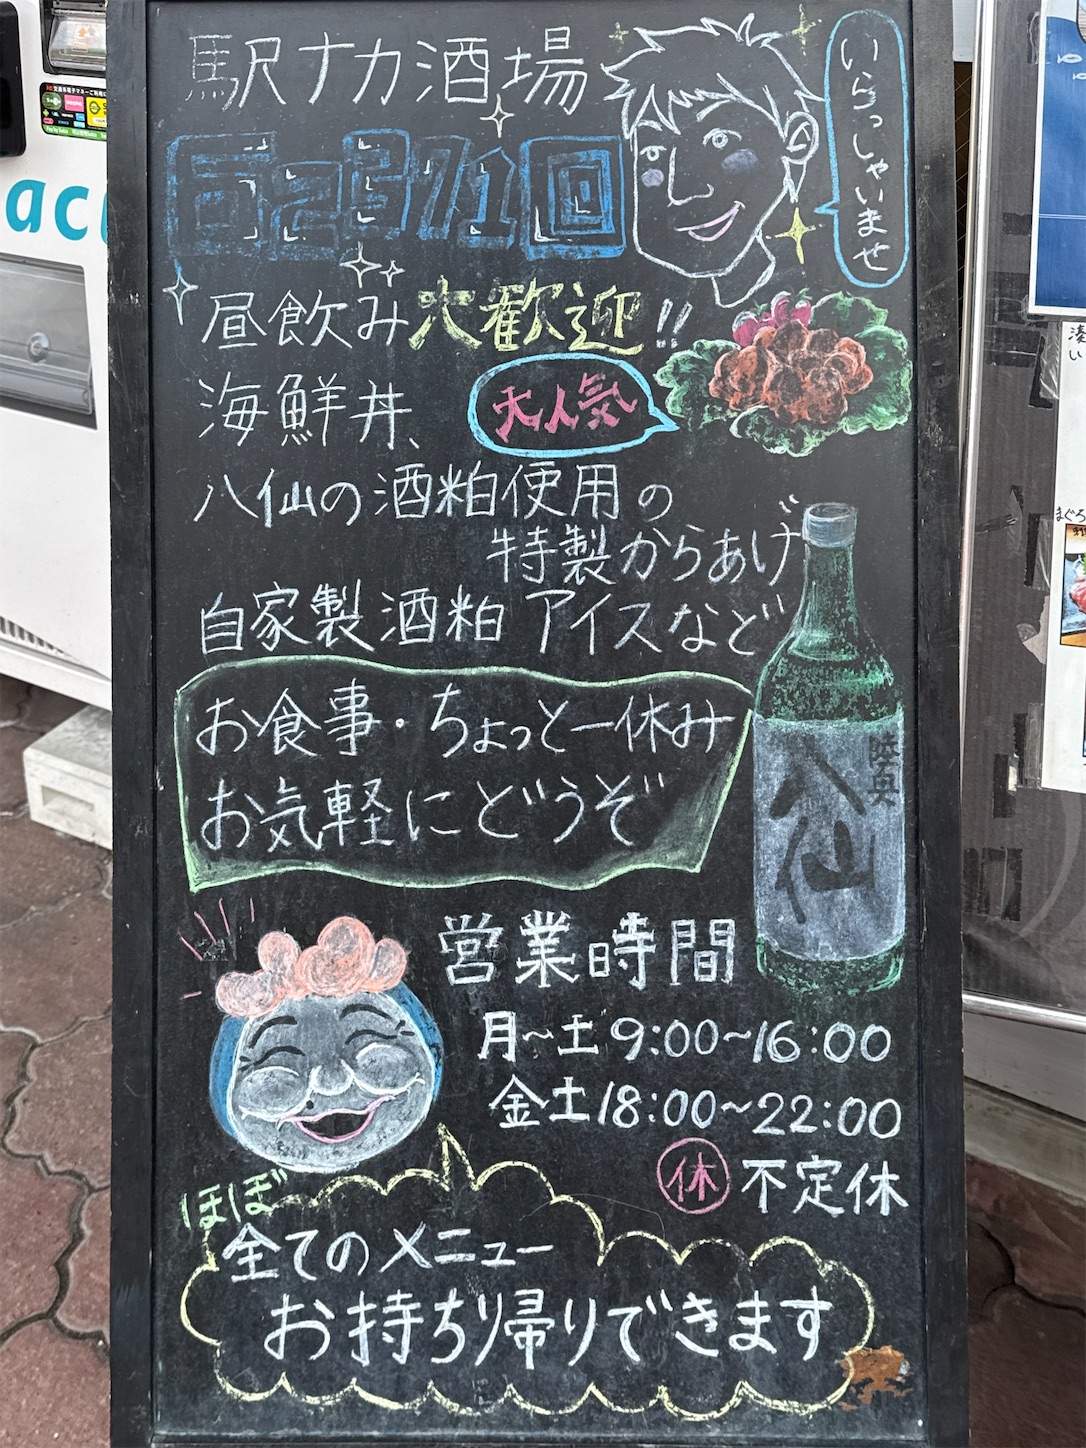 駅ナカ酒場
いらっしゃいませ
昼飲み大歓迎!!
海鮮丼、
大人気
八仙の酒粕使用の
特製からあげ
自家製酒粕アイスなど
お食事・ちょっと一休み
お気軽にどうぞ
陸奥
八仙
営業時間
月〜土 9:00〜16:00
金土 18:00〜22:00
休 不定休
ほぼ
全てのメニュー
お持ち帰りできます
ac
まぐろ